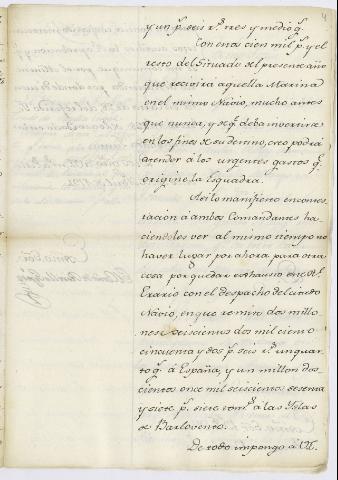 4
y un p.s seis r.s tres y medio g.s
Con esos cien mil p.s y el
resto del Situado del presente año
que recivirá aquella Marina
en el mismo Navio, mucho antes
que nunca, y se q.e deba invertirse
en los fines de su destino, creo podrá
atender á los urgentes gastos q.e
origine la Esquadra.
Asi lo manifiesto en contes-
tacion á ambos Comandantes ha-
ciendoles ver al mismo tiempo no
haver lugar por ahora para otra
cosa por quedar exhausto este R.l
Erario con el despacho del citado
Navio, en que remito dos millo-
nes seiscientos dos mil ciento
cincuenta y dos p.s seis r.s un quar-
to g.s á España, y un millon dos-
cientos once mil seiscientos sesenta
y siete p.s siete tom.s á las Yslas
de Barlovento.
De todo impongo á VE.